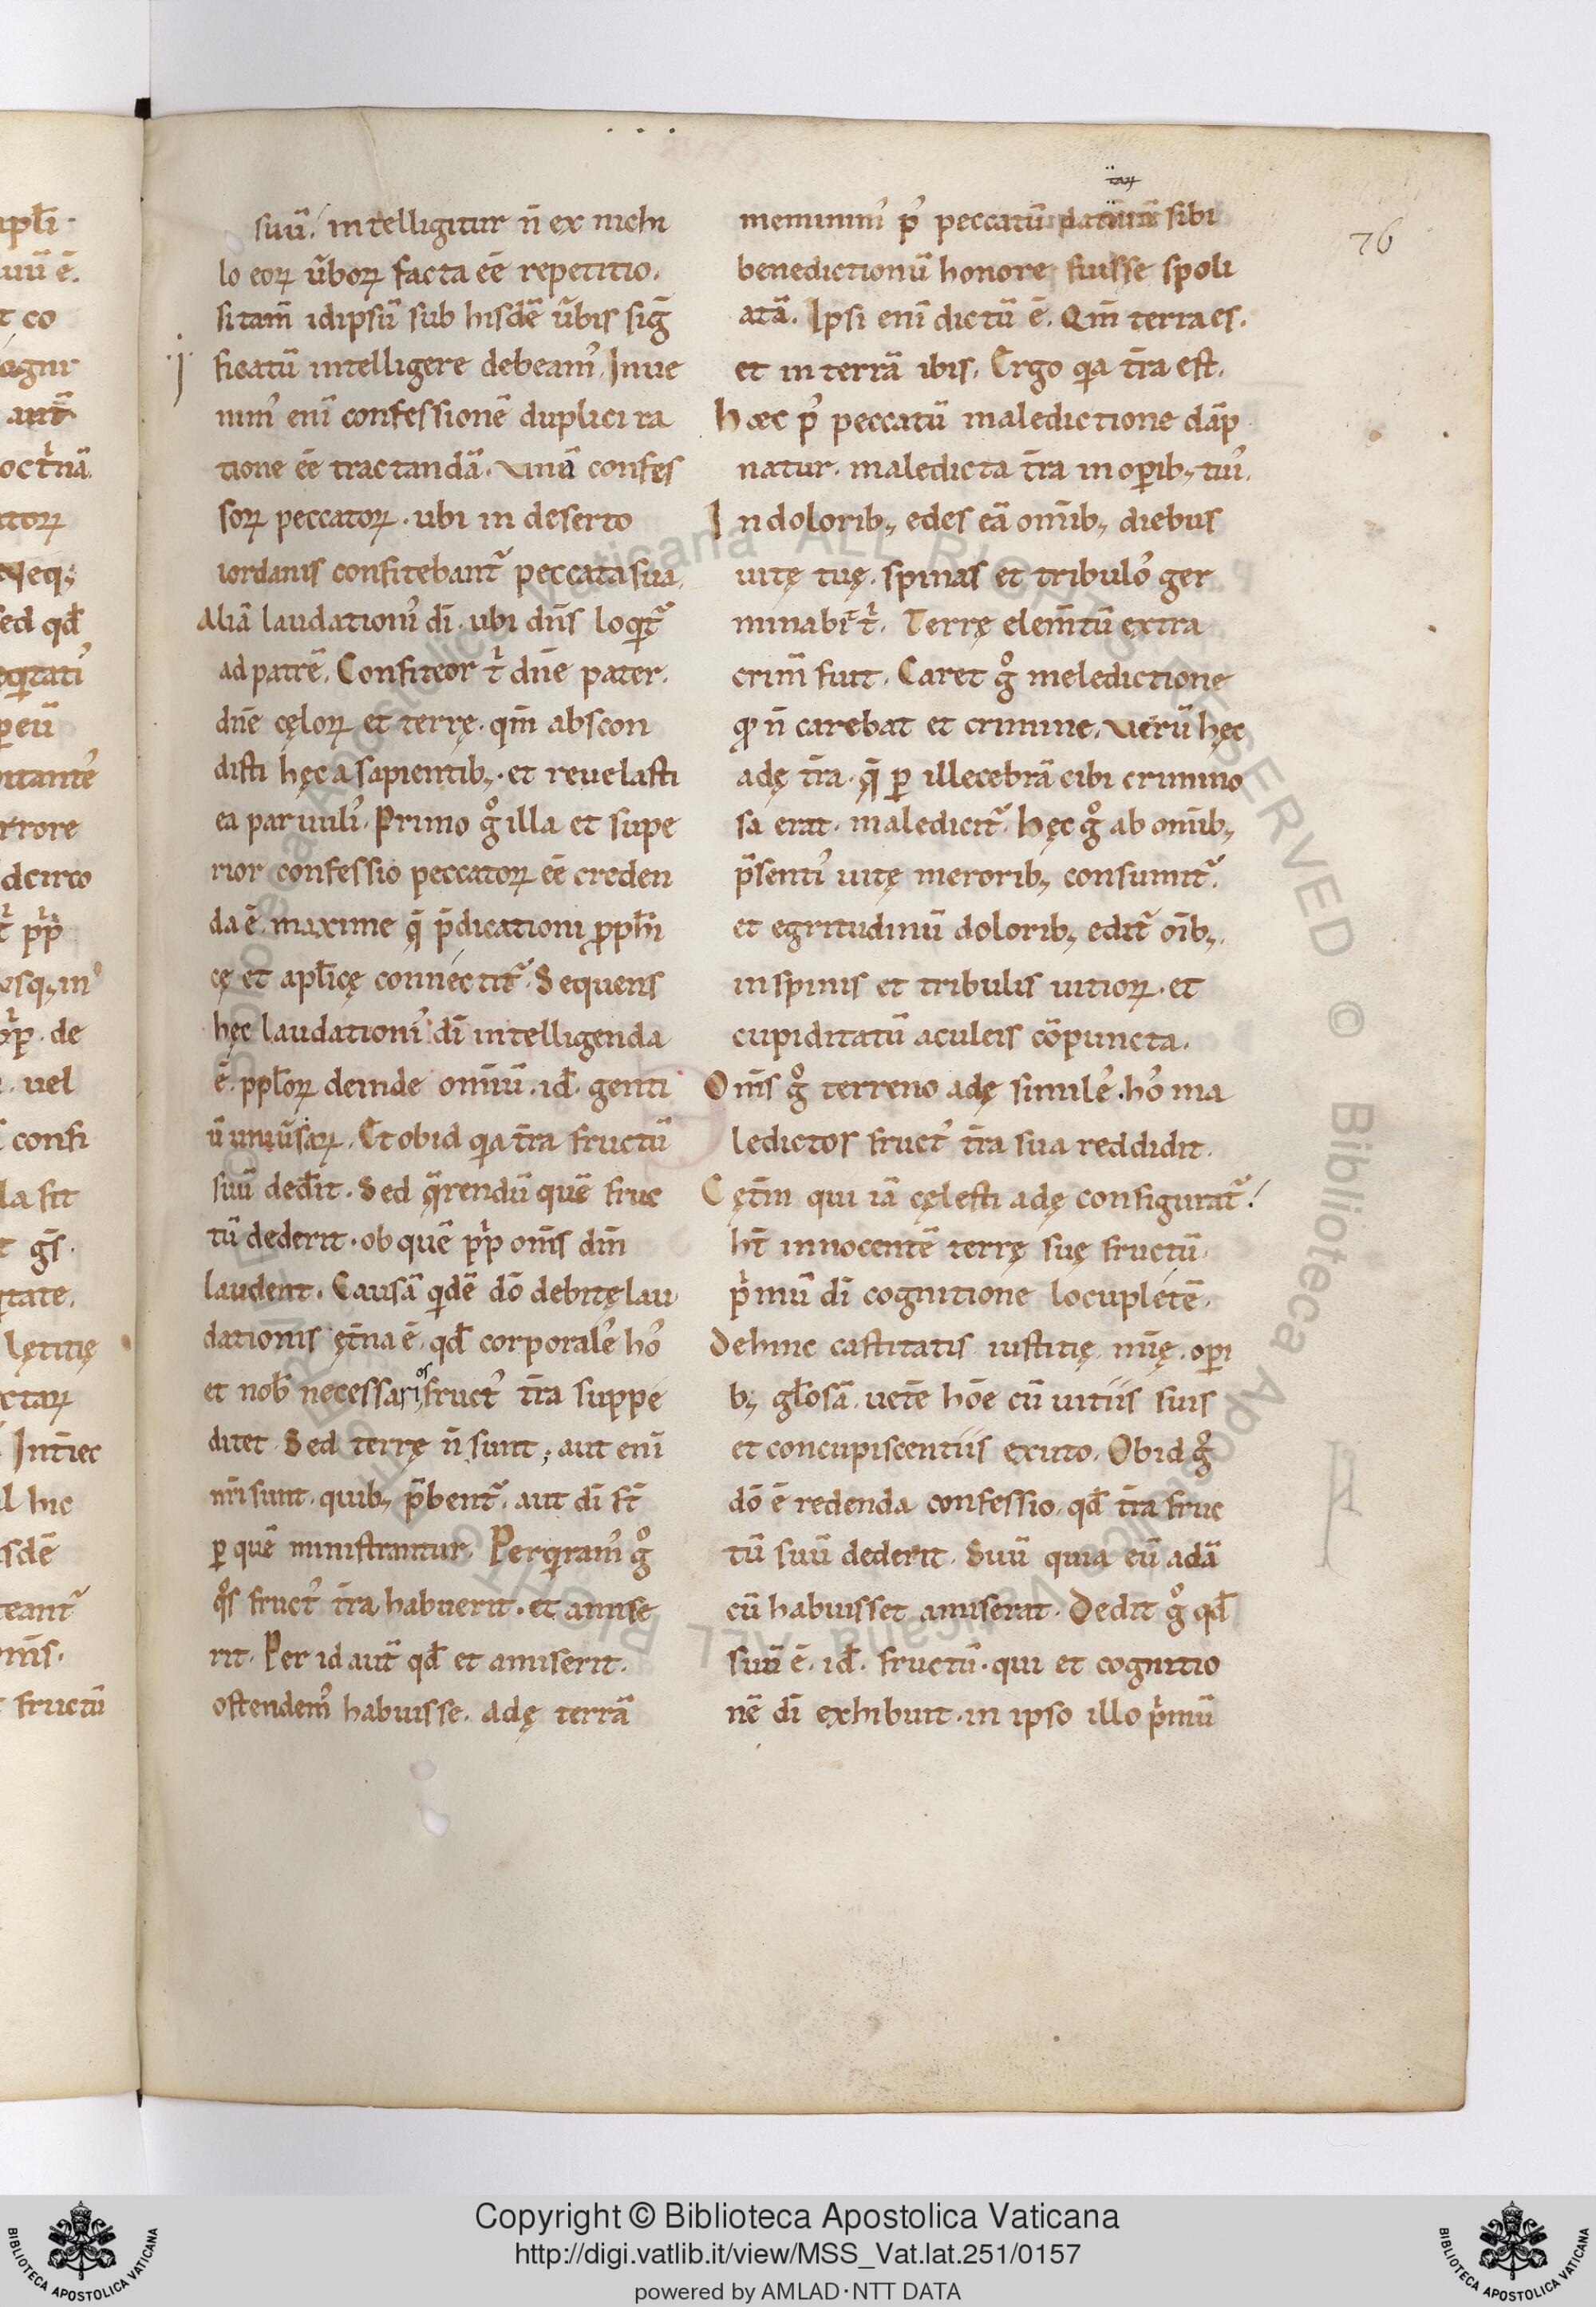 76
suū. intelligitur n̄ ex nichi
lo eoꝝ ūboꝝ facta eē repetitio.
si tam̄ idipsū sub hisdē ūbis siḡ
ficatū intelligere debeam᾽. Inue
nim᾽ enī confessionē duplici ra
tione eē tractandā. Vnā confes
soꝝ peccatoꝝ. ubi in deserto
iordanis confitebant᷑ peccata sua.
Aliā laudationi᾽ dī. ubi dn̄s loqͥt᷑
ad patrē. Confiteor tͥ dn̄e pater.
dn̄e cęloꝝ et terrę. qm̄ abscon
disti hęc a sapientib; et reuelasti
ea paruuli᾽. Primo gͦ illa et supe
rior confessio peccatoꝝ eē creden
da ē. maxime q̄ p̄dicationi ꝓph̄i
cę et apl̄icę connectit᷑. Sequens
hęc laudationi᾽ dī intelligenda
ē. ppl̄oꝝ deinde omniū. id̄. genti
ū uniūsaꝝ. Et ob id qͥa t̄ra fructū
suū ded̄it. Sed q̄rendū quē fruc
tū dederit. ob quē pͥp om̄s dn̄m
laudent. Causā qͥdē dō debitę lau
dationis ęt̄na ē. qd̄ corporale᾽ ho᾽
et nob̄ necessarios fruct᾽ t̄ra suppe
ditet. Sed terrę n̄ sunt; aut enī
nr̄i sunt. quib; p̄bent᷑. aut dī st̄
ꝑ quē ministrantur. Perqͥram᾽ gͦ
qͦs fruct᾽ t̄ra habuerit. et amise
rit. Per id aut̄ qd̄ et amiserit.
ostendem᾽ habuisse. adę terrā
meminim᾽ p᾽ peccatū sibi
benedictionū honore fuisse spoli
atā. Ipsi enī dictū ē. Qm̄ terra es.
et in terrā ibis. Ergo qͥa t̄ra est.
hæc p᾽ peccatū maledictione dāp
natur. maledicta t̄ra in oꝑib; tui᾽.
In dolorib; edes eā om̄ib; diebus
uitę tuę. spinas et tribulo᾽ ger
minabit tͥ. Terrę elem̄tū extra
crim̄ fuit. Caret gͦ meledictione
qͦ n̄ carebat et crimine. Verū hęc
adę t̄ra. q̄ ꝑ illecebrā cibi crimino
sa erat. maledicit᷑. hęc gͦ ab om̄ib;
p̄senti᾽ uitę merorib; consumit᷑.
et egritudinū dolorib; edit᷑ oīb;.
in spinis et tribulis uitioꝝ. et
cupiditatū aculeis cōpuncta.
Om̄s gͦ terreno adę simile᾽. ho᾽ ma
ledictos fruct᾽ t̄ra sua reddidit.
Cęt̄m qui iā cęlesti adę configurat᷑!
ht̄ innocentē terrę suę fructū.
pͥmū dī cognitione locupletē.
Dehinc castitatis iustitię mīę. oꝑi
b; gl̄osā. uet̄e hōe cū uitiis suis
et concupiscentiis exuto. Ob id gͦ
dō ē redenda confessio. qd̄ t̄ra fruc
tū suū dederit. Suū quia eū adā
cū habuisset amiserat. Dedit gͦ qd̄
suū ē. id̄. fructū. qui et cognitio
nē dī exhibuit. in ipso illo pͥmū
Copyright © Biblioteca Apostolica Vaticana
http://digi.vatlib.it/view/MSS_Vat.lat.251/0157
powered by AMLAD·NTT DATA